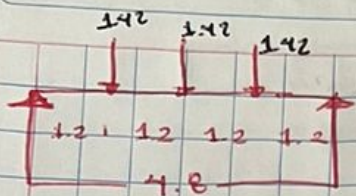 1.42 1.42 1.42
1.2 1.2 1.2 1.2
4.8